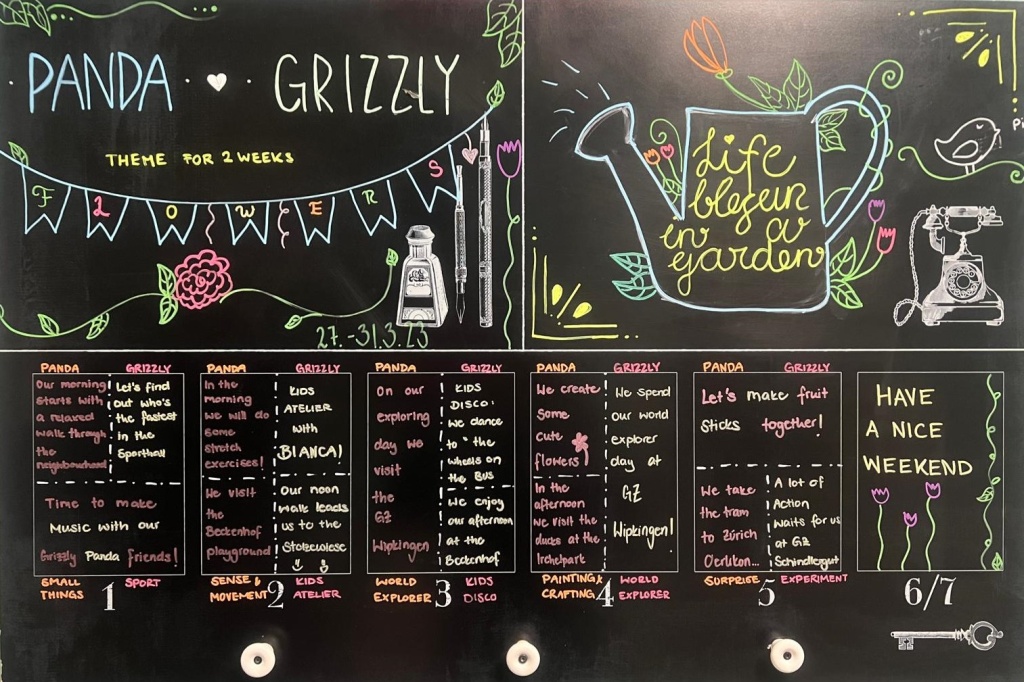 PANDA GRIZZLY
THEME FOR 2 WEEKS
FLOWERS
27.-31.3.23
Life
blegun
in a
garden
Pi
PANDA GRIZZLY
Our morning
starts with
a relaxed
walk through
the
neighbourhood
Let's find
out who's
the fastest
in the
Sporthall
Time to make
Music with our
Grizzly Panda friends!
SMALL
THINGS
SPORT
1
PANDA GRIZZLY
In the
morning
we will do
some
stretch
exercises!
KIDS
ATELIER
with
BIANCA!
We visit
the
Beckenhof
playground
Our noon
walk leads
us to the
Stolzewiese
SENSE &
MOVEMENT
KIDS
ATELIER
2
PANDA GRIZZLY
On our
exploring
day we
visit
the
GZ
Wipkingen
KIDS
DISCO:
We dance
to "the
wheels on
the Bus
We enjoy
our afternoon
at the
Beckenhof
WORLD
EXPLORER
KIDS
DISCO
3
PANDA GRIZZLY
We create
some
cute
flowers!
In the
afternoon
we visit the
ducks at the
Irchelpark
We spend
our world
explorer
day at
GZ
Wipkingen!
PAINTING &
CRAFTING
WORLD
EXPLORER
4
PANDA GRIZZLY
Let's make fruit
sticks together!
We take
the tram
to Zürich
Oerlikon...
A lot of
Action
waits for us
at GZ
Schindlergut
SURPRISE EXPERIMENT
5
HAVE
A NICE
WEEKEND
6/7